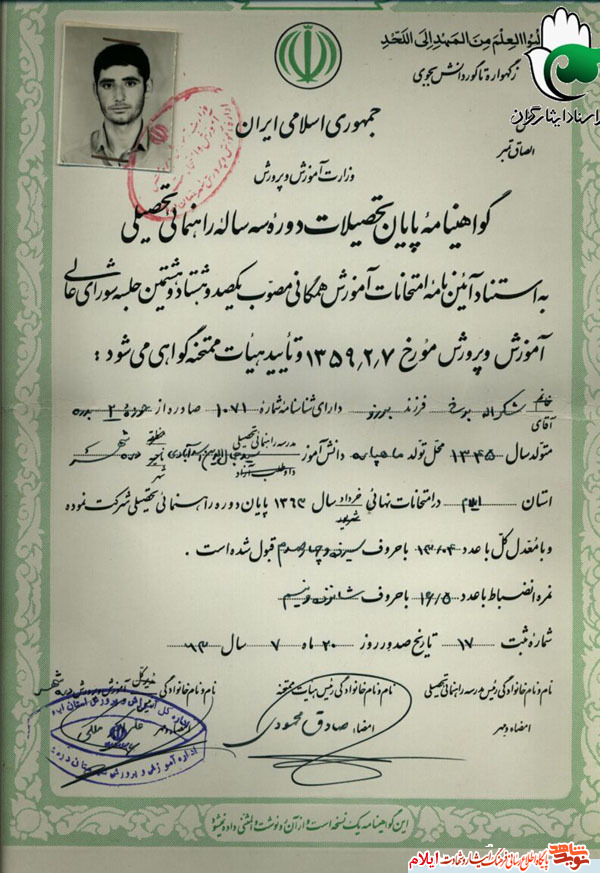 اطلبوا العلم من المهد الی اللحد
ز گهواره تا گور دانش بجوی
اسناد ایثارگران
الصاق تمبر
جمهوری اسلامی ایران
وزارت آموزش و پرورش
گواهینامهٔ پایان تحصیلات دورهٔ سه سالهٔ راهنمائی تحصیلی
به استناد آئین نامهٔ امتحانات آموزش همگانی مصوب یکصد و هشتاد و هشتمین جلسه شورای عالی
آموزش و پرورش مورخ ۱۳۵۹٫۲٫۷ و تأیید هیأت ممتحنه گواهی می شود :
خانم
آقای
شکراله فرزند نوروز دارای شناسنامه شمارهٔ ۱۰۷۱ صادره از حوزه ۲ بدره
متولد سال ۱۳۴۵ محل تولد دانش آموز مدرسه راهنمائی تحصیلی
داوطلب آزاد
منطقه
ناحیه
شهر
استان ایلام در امتحانات نهائی خرداد
شهریور
سال ۱۳۶۳ پایان دوره راهنمائی تحصیلی شرکت نموده
و با معدل کل با عدد ۱۳/۰۴ با حروف سیزده و چهار صدم قبول شده است .
نمره انضباط با عدد ۱۶/۵ با حروف شانزده و نیم
شمارهٔ ثبت ۱۷ تاریخ صدور روز ۲۰ ماه ۷ سال ۶۳
نام و نام خانوادگی رئیس مدرسه راهنمائی تحصیلی
امضاء و مهر
نام و نام خانوادگی رئیس هیات ممتحنه
امضاء صادق محمودی
نام و نام خانوادگی مدیر کل
آموزش و پرورش
امضاء و مهر
اداره کل آموزش و پرورش استان ایلام
اداره آموزش و پرورش شهرستان دره شهر
این گواهینامه یک نسخه است و از آن رونوشت و المثنی داده نمیشود
نوید شاهد
پایگاه اطلاع رسانی فرهنگ ایثار و شهادت ایلام